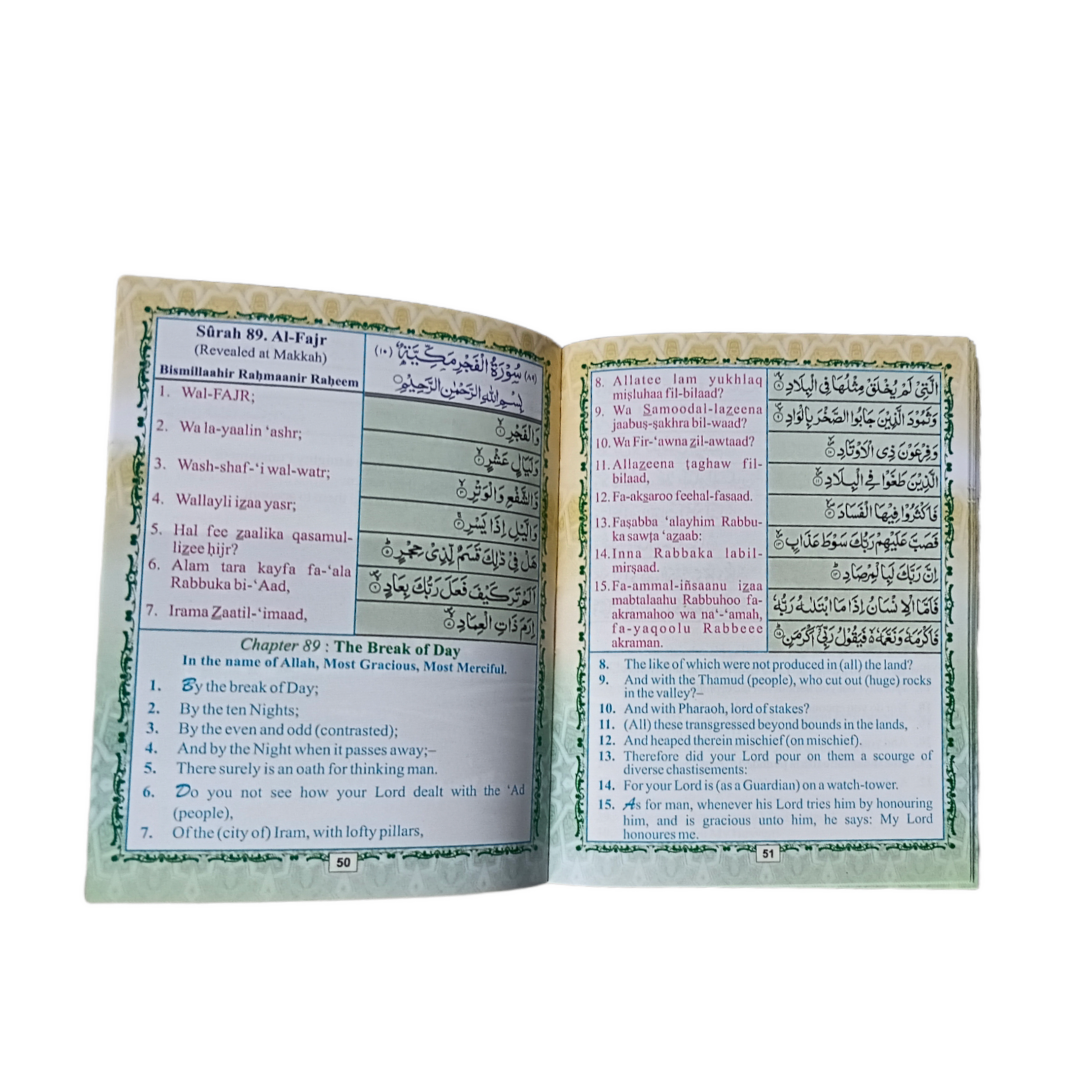 Sûrah 89. Al-Fajr
(Revealed at Makkah)
Bismillaahir Raḥmaanir Raḥeem
1. Wal-FAJR;
2. Wa la-yaalin ‘ashr;
3. Wash-shaf-‘i wal-watr;
4. Wallayli iz̲aa yasr;
5. Hal fee z̲aalika qasamul-
liz̲ee ḥijr?
6. Alam tara kayfa fa-‘ala
Rabbuka bi-‘Aad,
7. Irama Z̲aatil-‘imaad,
(٨٩) سُوْرَةُ الْفَجْرِ مَكِّيَّةٌ (١٠)
بِسْمِ اللّٰهِ الرَّحْمٰنِ الرَّحِيْمِ
وَالْفَجْرِ
وَلَيَالٍ عَشْرٍ
وَّالشَّفْعِ وَالْوَتْرِ
وَالَّيْلِ اِذَا يَسْرِ
هَلْ فِيْ ذٰلِكَ قَسَمٌ لِّذِيْ حِجْرٍ
اَلَمْ تَرَ كَيْفَ فَعَلَ رَبُّكَ بِعَادٍ
اِرَمَ ذَاتِ الْعِمَادِ
Chapter 89 : The Break of Day
In the name of Allah, Most Gracious, Most Merciful.
1. By the break of Day;
2. By the ten Nights;
3. By the even and odd (contrasted);
4. And by the Night when it passes away;–
5. There surely is an oath for thinking man.
6. Do you not see how your Lord dealt with the ‘Ad
(people),
7. Of the (city of) Iram, with lofty pillars,
50
8. Allatee lam yukhlaq
mis̲luhaa fil-bilaad?
9. Wa S̲amoodal-laz̲eena
jaabuṣ-ṣakhra bil-waad?
10. Wa Fir-‘awna z̲il-awtaad?
11. Allaz̲eena ṭaghaw fil-
bilaad,
12. Fa-aks̲aroo feehal-fasaad.
13. Faṣabba ‘alayhim Rabbu-
ka sawṭa ‘az̲aab:
14. Inna Rabbaka labil-
mirṣaad.
15. Fa-ammal-iñsaanu iz̲aa
mabtalaahu Rabbuhoo fa-
akramahoo wa na‘-‘amah,
fa-yaqoolu Rabbeee
akraman.
الَّتِيْ لَمْ يُخْلَقْ مِثْلُهَا فِي الْبِلَادِ
وَثَمُوْدَ الَّذِيْنَ جَابُوا الصَّخْرَ بِالْوَادِ
وَفِرْعَوْنَ ذِي الْاَوْتَادِ
الَّذِيْنَ طَغَوْا فِي الْبِلَادِ
فَاَكْثَرُوْا فِيْهَا الْفَسَادَ
فَصَبَّ عَلَيْهِمْ رَبُّكَ سَوْطَ عَذَابٍ
اِنَّ رَبَّكَ لَبِالْمِرْصَادِ
فَاَمَّا الْاِنْسَانُ اِذَا مَا ابْتَلٰىهُ رَبُّهٗ
فَاَكْرَمَهٗ وَنَعَّمَهٗ فَيَقُوْلُ رَبِّيْ اَكْرَمَنِ
8. The like of which were not produced in (all) the land?
9. And with the Thamud (people), who cut out (huge) rocks
in the valley?–
10. And with Pharaoh, lord of stakes?
11. (All) these transgressed beyond bounds in the lands,
12. And heaped therein mischief (on mischief).
13. Therefore did your Lord pour on them a scourge of
diverse chastisements:
14. For your Lord is (as a Guardian) on a watch-tower.
15. As for man, whenever his Lord tries him by honouring
him, and is gracious unto him, he says: My Lord
honoures me.
51